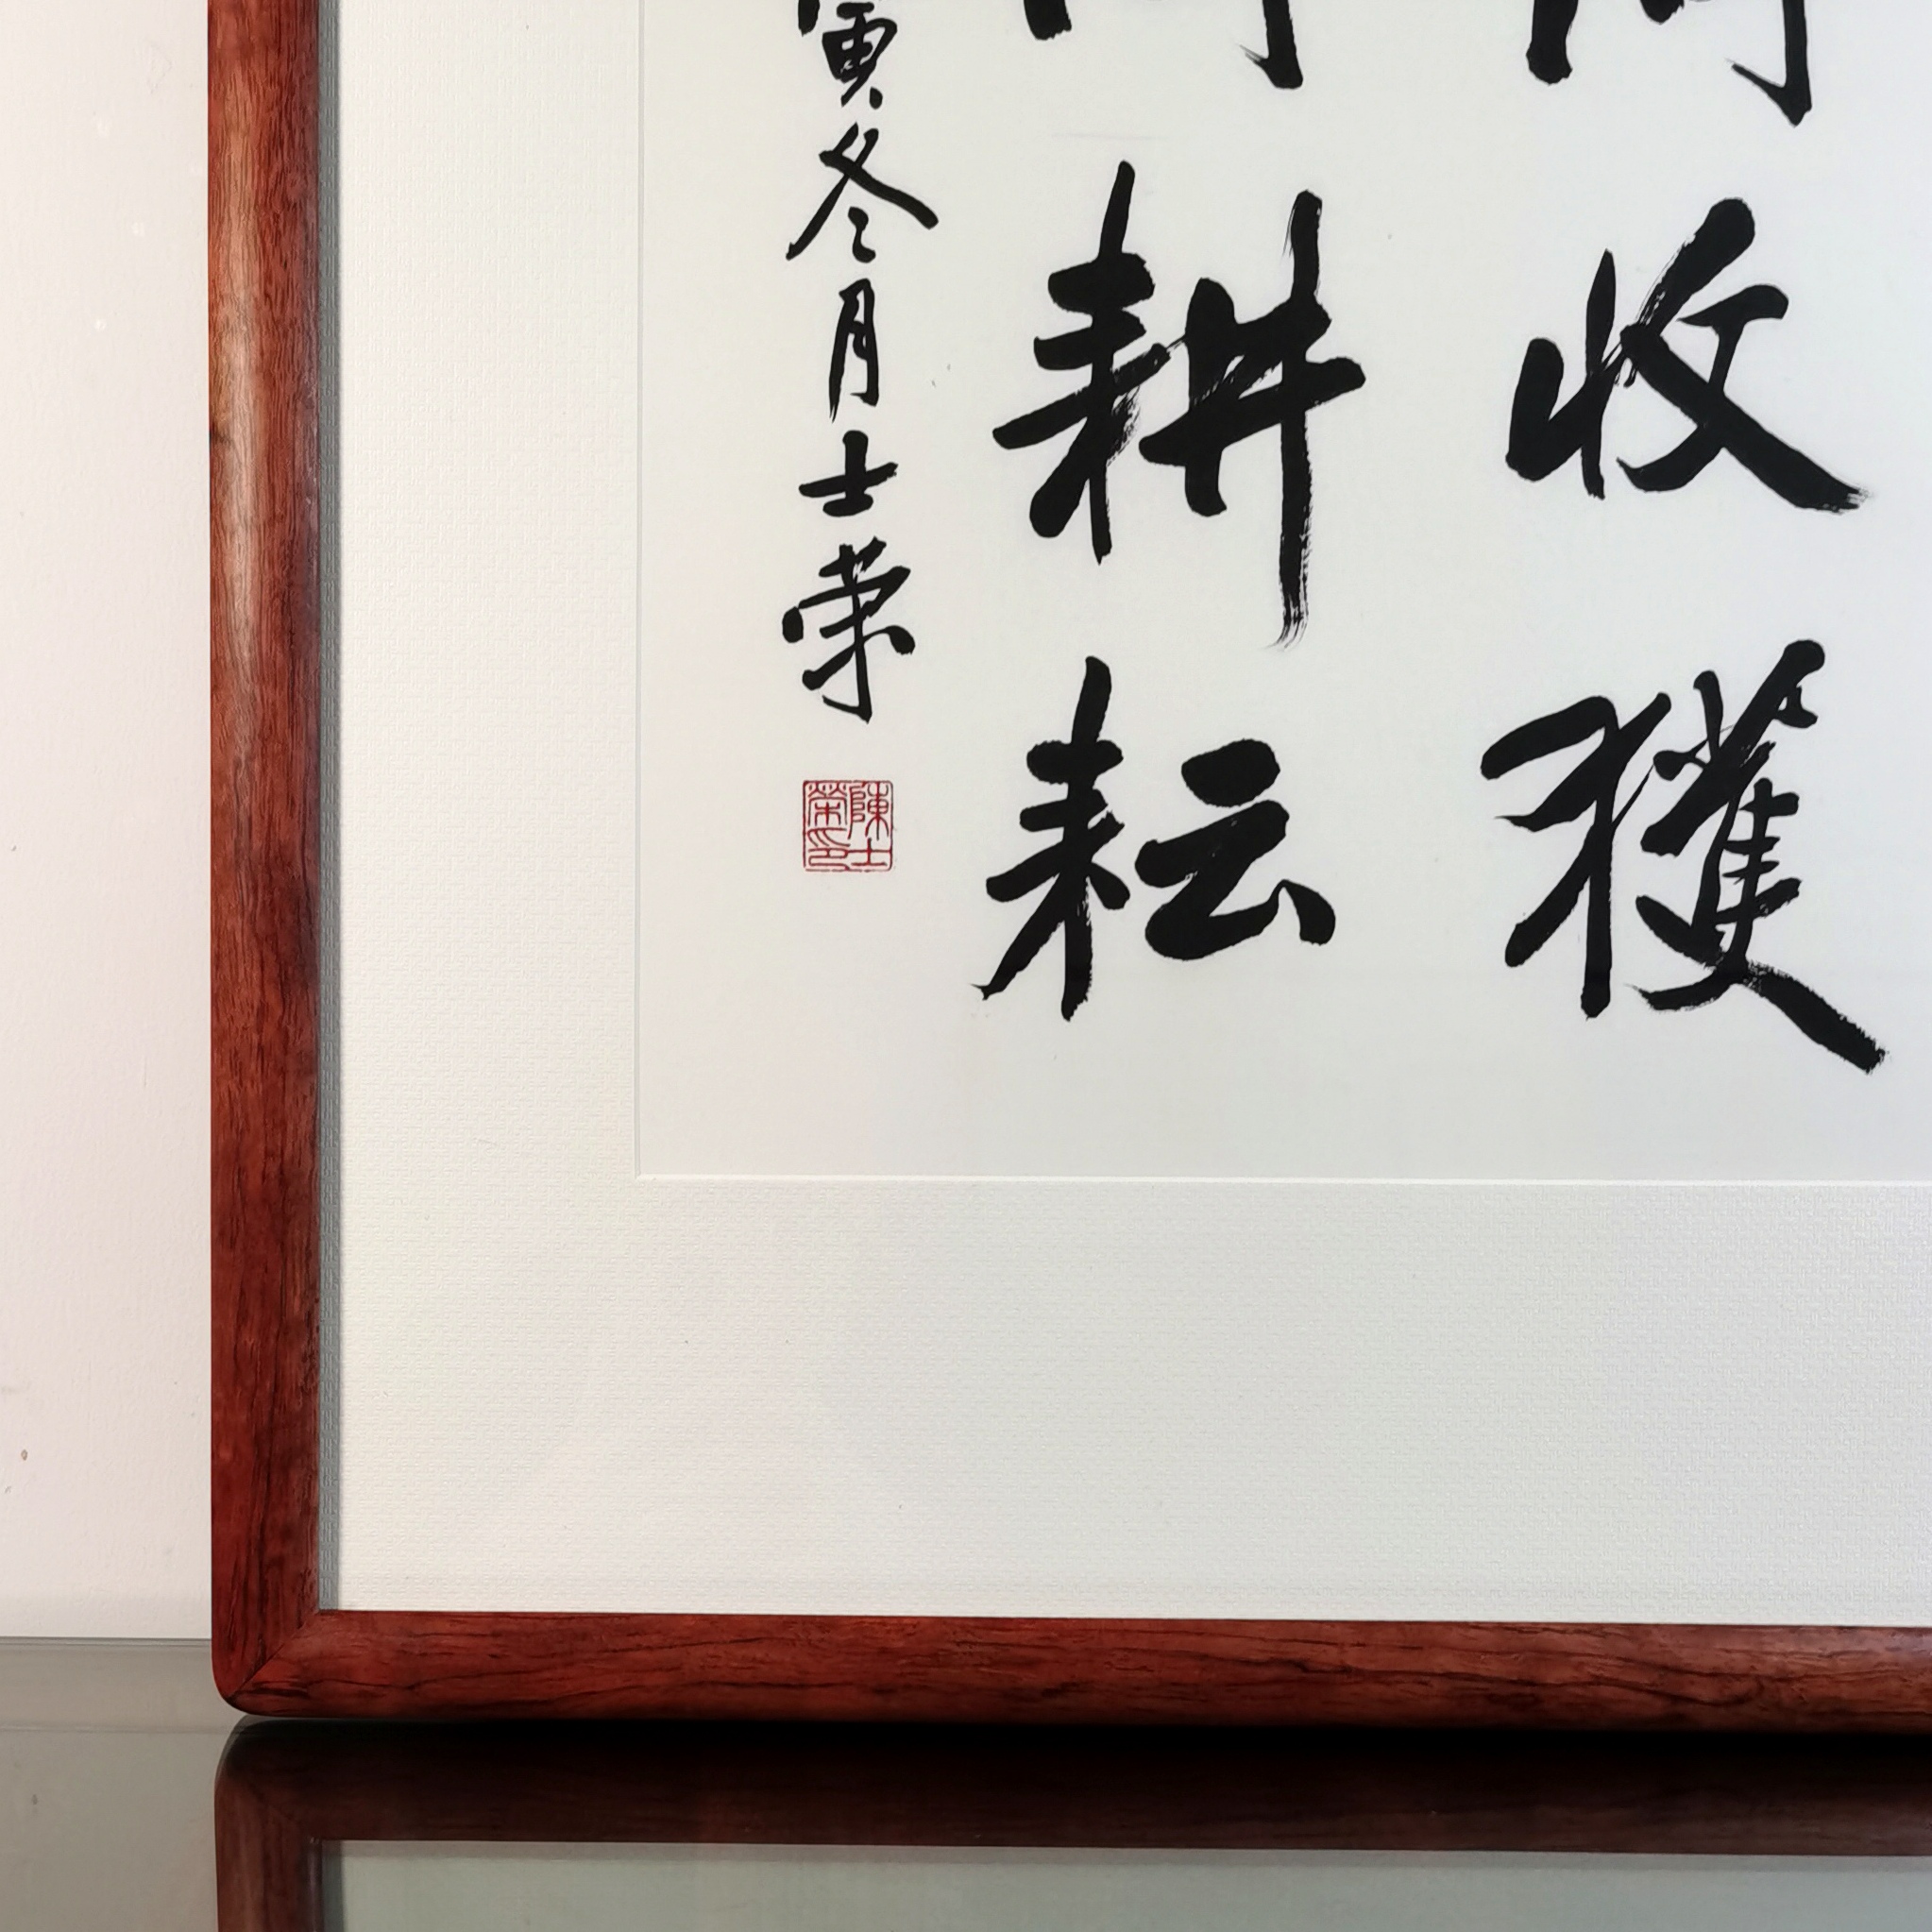 收獲
耕耘
寅冬月士荣
陳士榮印